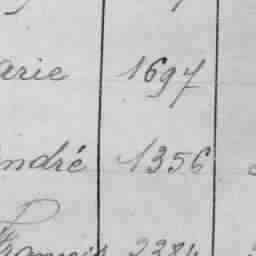 arie 1697
ndré 1356
François 2384